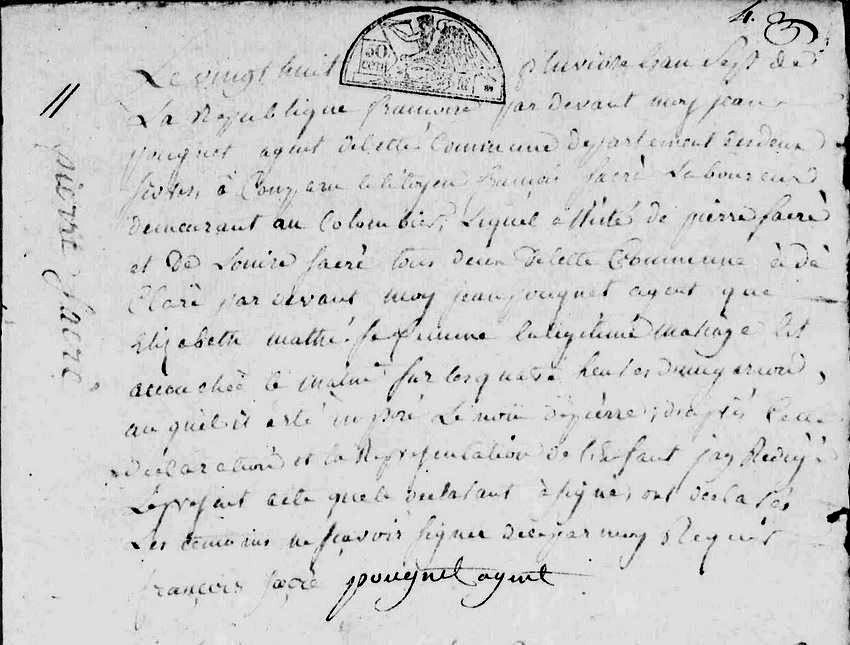 4. 3
50 cent
Le vingt huit pluviose l'an Sept de
La Republique francoise par devant moy jean
pougnet agent de cette Commune departement des deux
Sevres à Comparu le Citoyen francois Sacré Laboureux
demeurant au Colombier, Lequel assisté de pierre Sacré
et De Louise Sacré tous deux de cette Commune à dé
Claré par devant moy jean pougnet agent que
Elizabeth mathé Sa femme en legitime mariage est
accouchée le matin Sur les quatre heures d'un garcon,
au quel il a été imposé Le nom de pierre, d'après cette
declaration et la Representation de l'enfant jay Redigé
Le present acte que le declarant à Signé, ont declarés
Les temoins ne Scavoir Signer de ce par moy Requis
françois sacré pougnet agent
11
pierre Sacré